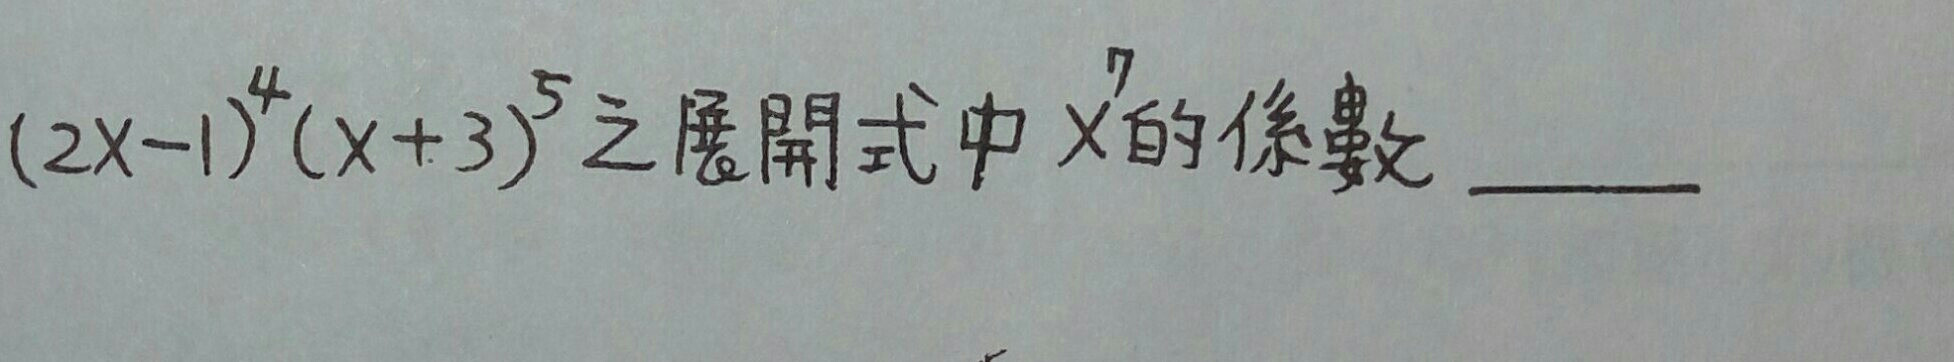 (2x-1)⁴(x+3)⁵之展開式中x⁷的係數____